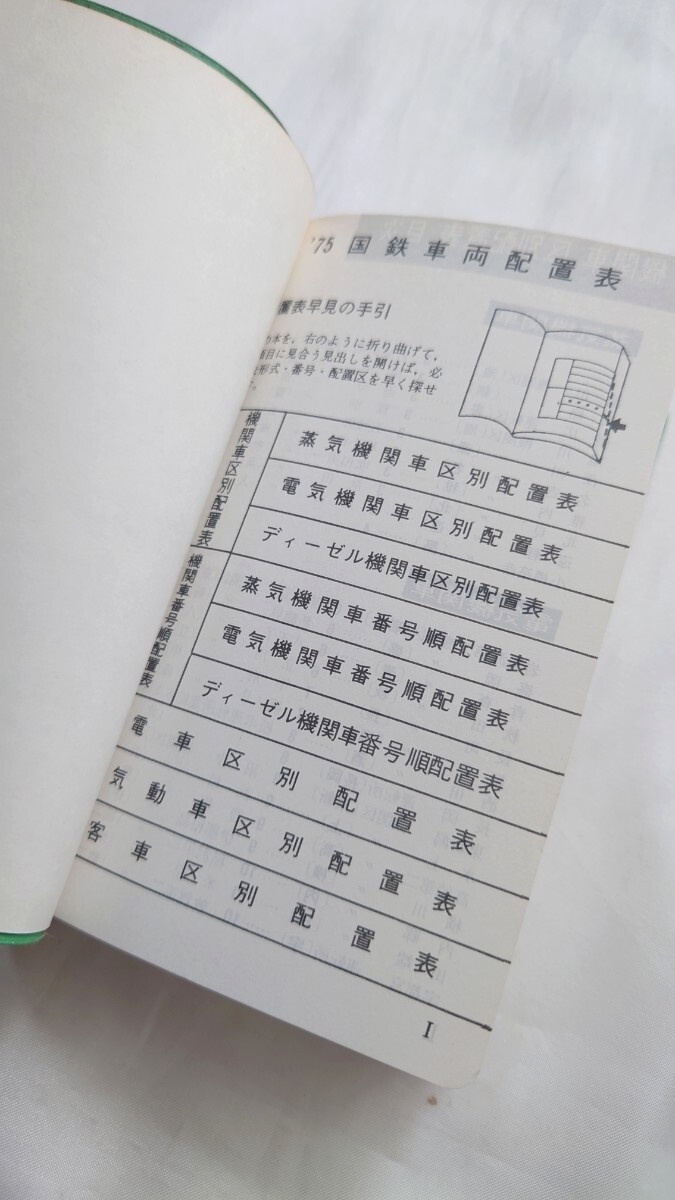 '75 国鉄車両配置表
置表早見の手引
本を，右のように折り曲げて，
目に見合う見出しを開けば，必
形式・番号・配置区を早く探せ
機関車区別配置表
蒸気機関車区別配置表
電気機関車区別配置表
ディーゼル機関車区別配置表
機関車番号順配置表
蒸気機関車番号順配置表
電気機関車番号順配置表
ディーゼル機関車番号順配置表
電車区別配置表
気動車区別配置表
客車区別配置表
I